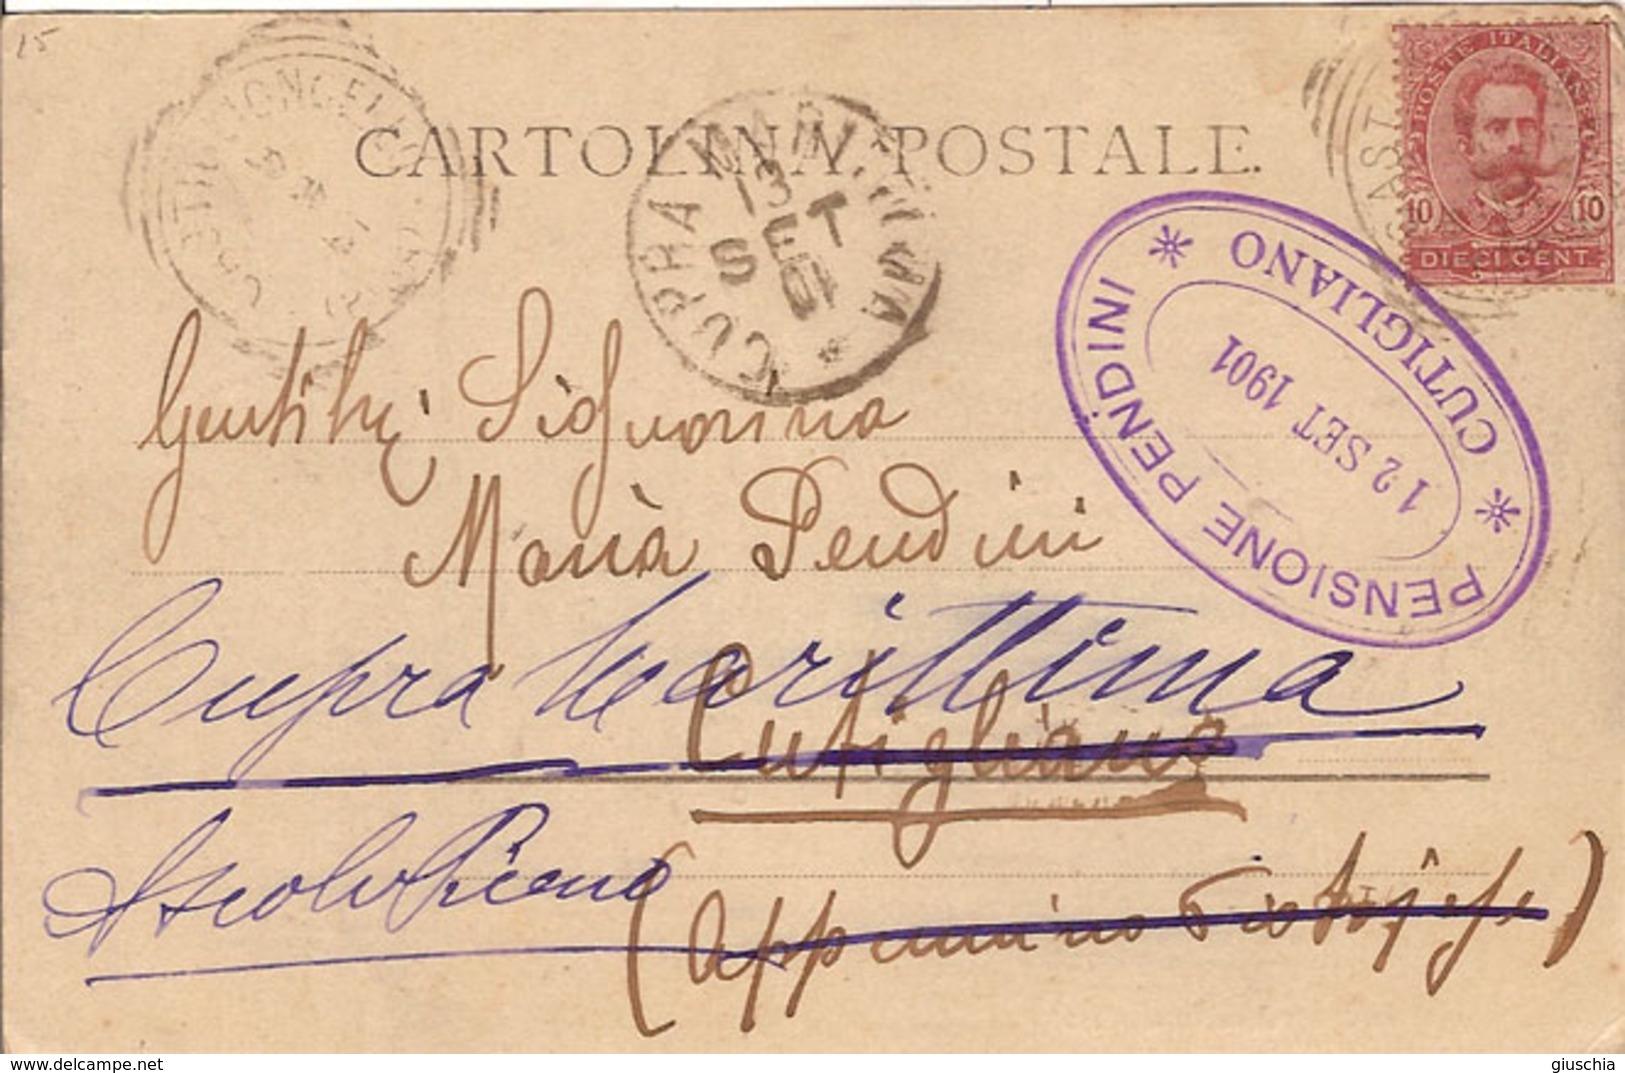 15
CARTOLINA POSTALE.
POSTE ITALIANE
10 10
DIECI CENT.
CUPRA MARITTIMA
13
SET
S 01
* CUTIGLIANO *
12 SET 1901
PENSIONE PENDINI
Gentilme Signorina
Maria Pendini
Cupra Marittima
Cutigliano
Ascoli Piceno
(Appennino Pistojese)
delcampe.net
giuschia